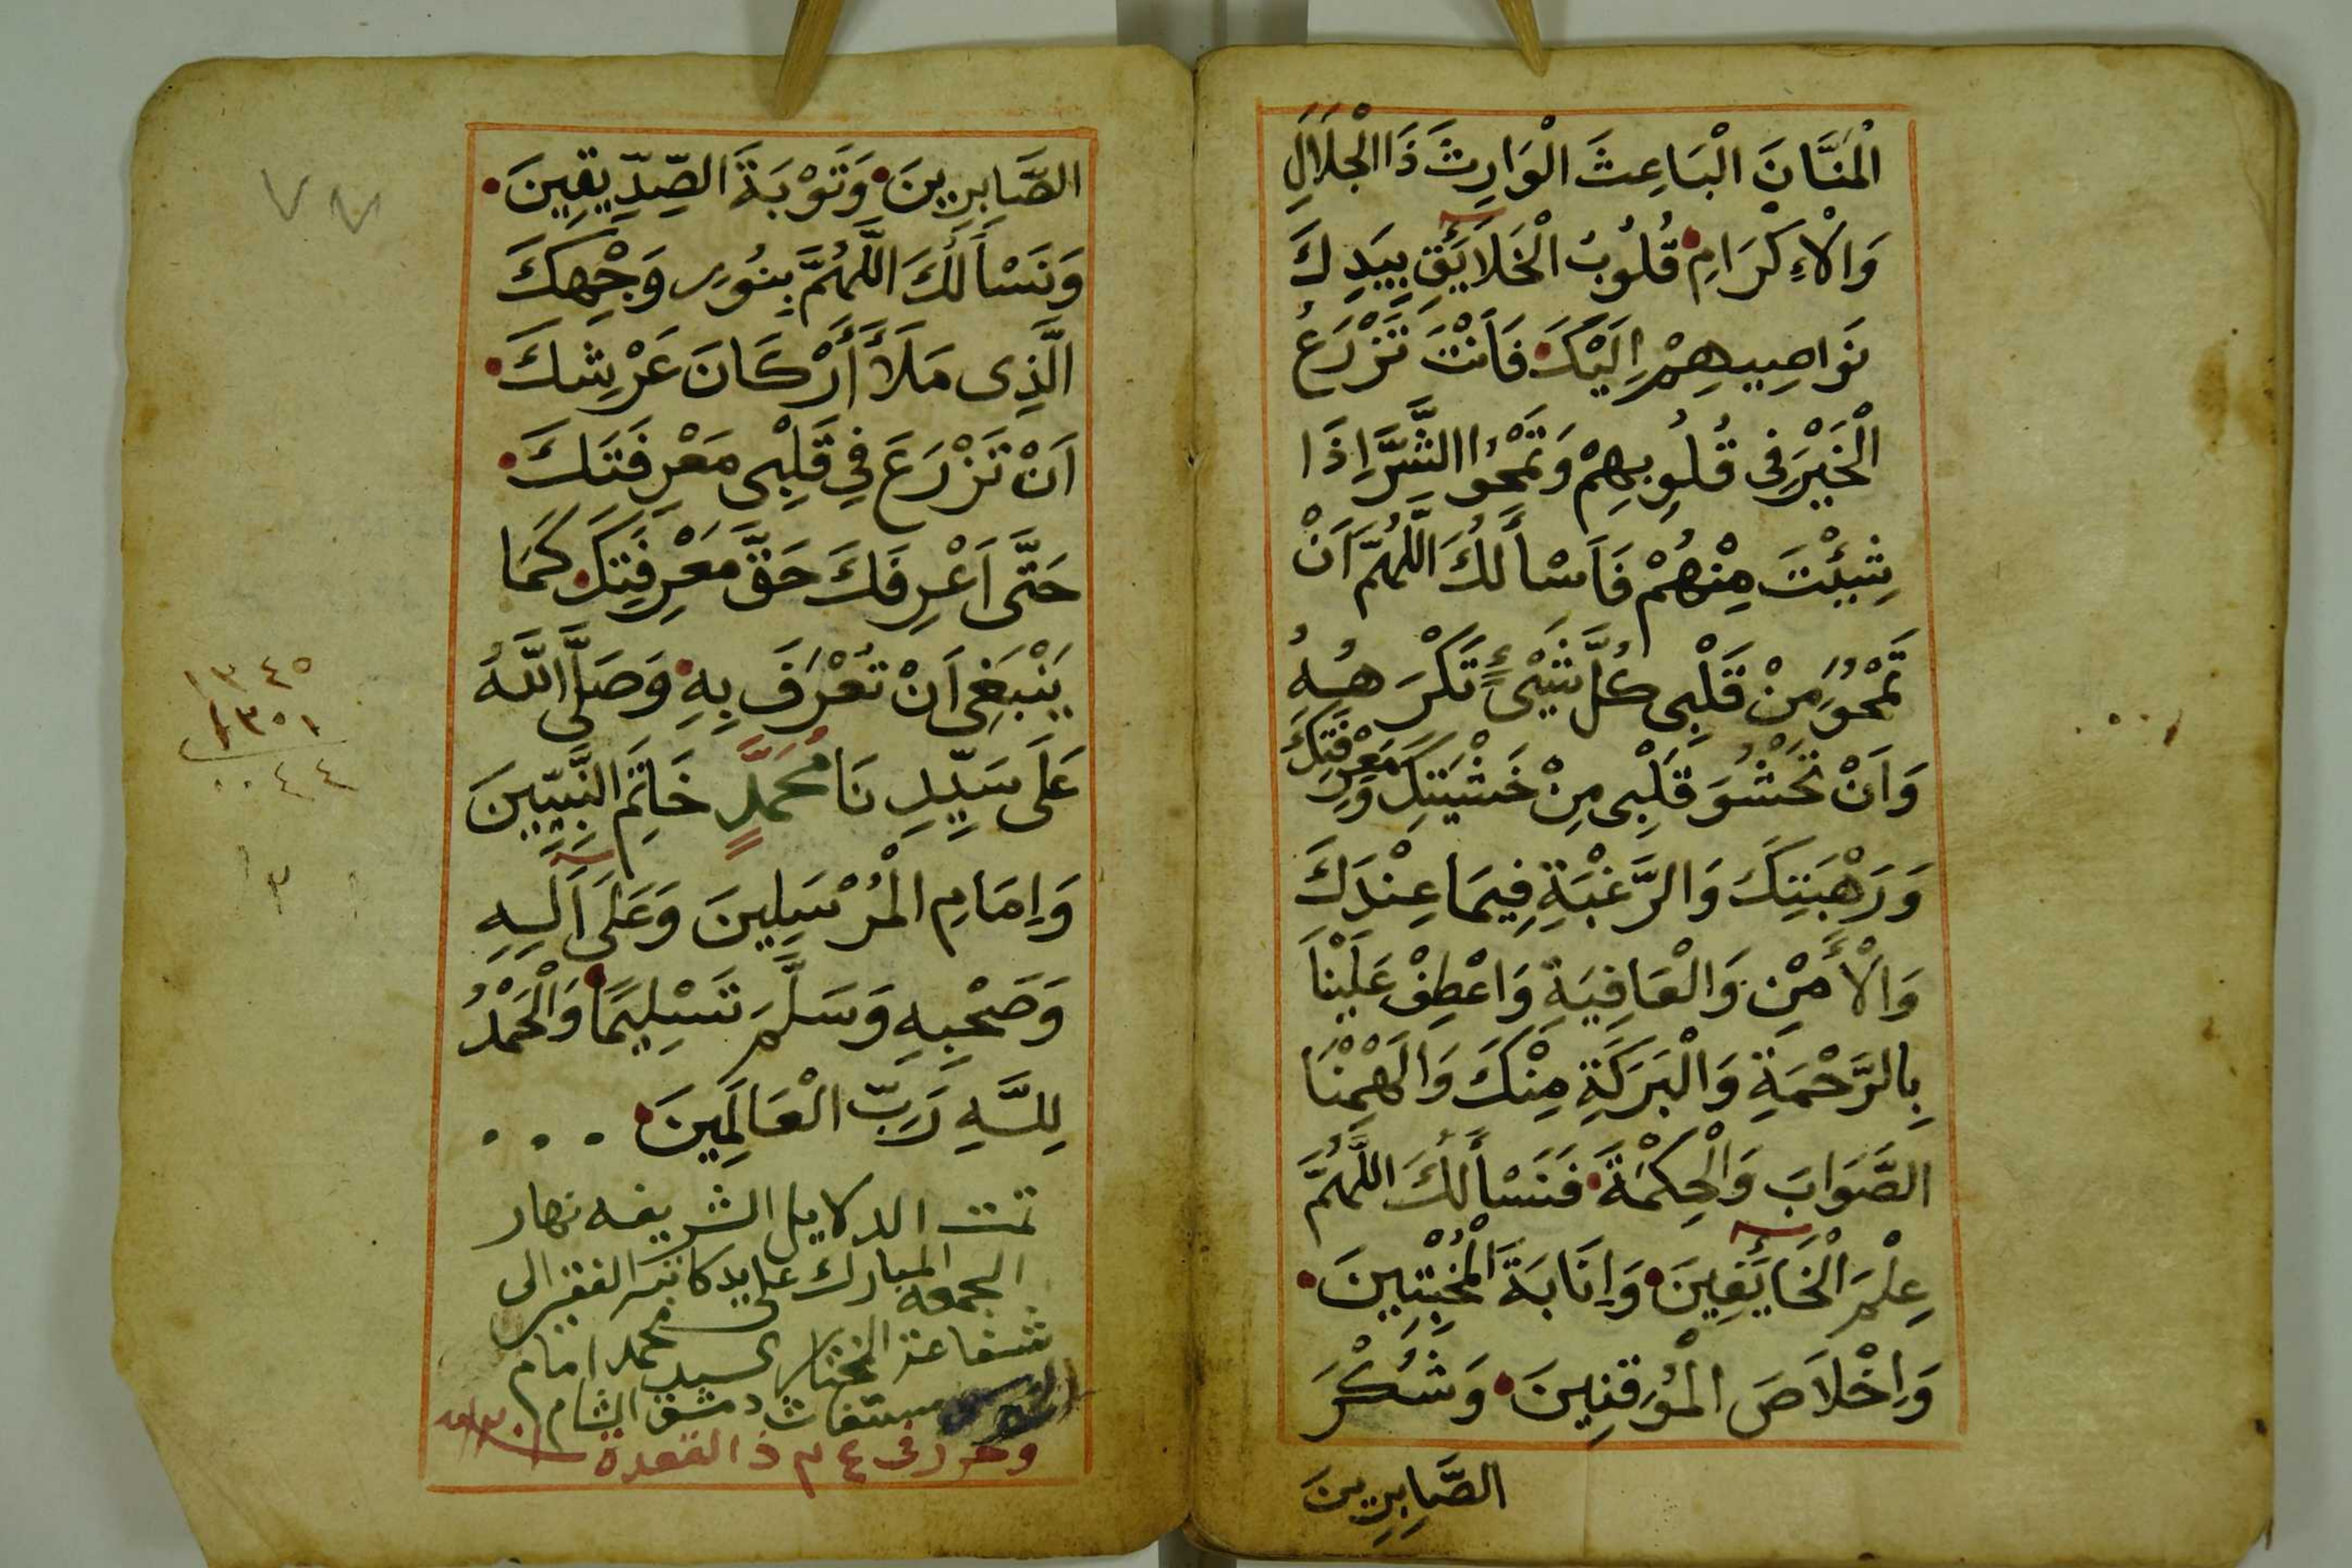 الْمَنَّانَ الْبَاعِثَ الْوَارِثَ ذَا الْجَلَالِ
وَالْإِكْرَامِ قُلُوبُ الْخَلَآئِقِ بِيَدِكَ
نَوَاصِيهِمْ إِلَيْكَ فَأَنْتَ تَزْرَعُ
الْخَيْرَ فِى قُلُوبِهِمْ وَتَمْحُوا الشَّرَّ اِذَا
شِئْتَ مِنْهُمْ فَاَسْأَلُكَ اللَّهُمَّ اَنْ
تَمْحُوَ مِنْ قَلْبِى كُلَّ شَيْئٍ تَكْرَهُهُ
وَاَنْ تَحْشُوَ قَلْبِى مِنْ خَشْيَتِكَ وَمَعْرِفَتِكَ
وَرَهْبَتِكَ وَالرَّغْبَةِ فِيمَا عِنْدَكَ
وَالْأَمْنِ وَالْعَافِيَةِ وَاعْطِفْ عَلَيْنَا
بِالرَّحْمَةِ وَالْبَرَكَةِ مِنْكَ وَاَلْهِمْنَا
الصَّوَابَ وَالْحِكْمَةَ فَنَسْأَلُكَ اللَّهُمَّ
عِلْمَ الْخَآئِفِينَ وَاِنَابَةَ الْمُخْبِتِينَ
وَاِخْلَاصَ الْمُوقِنِينَ وَشُكْرَ
الصَّابِرِينَ
الصَّابِرِينَ وَتَوْبَةَ الصِّدِّيقِينَ
وَنَسْأَلُكَ اللَّهُمَّ بِنُورِ وَجْهِكَ
الَّذِى مَلَأَ أَرْكَانَ عَرْشِكَ
اَنْ تَزْرَعَ فِي قَلْبِى مَعْرِفَتَكَ
حَتَّى اَعْرِفَكَ حَقَّ مَعْرِفَتِكَ كَمَا
يَنْبَغِى اَنْ تُعْرَفَ بِهِ وَصَلَّى اللَّهُ
عَلَى سَيِّدِنَا مُحَمَّدٍ خَاتِمِ النَّبِيِّينَ
وَاِمَامِ الْمُرْسَلِينَ وَعَلَى آلِهِ
وَصَحْبِهِ وَسَلَّمَ تَسْلِيمًا وَالْحَمْدُ
لِلَّهِ رَبِّ الْعَالَمِينَ
تمت الدلايل الشريفه نهار
الجمعه المبارك على يد كاتبه الفقير الى
شفاعة المختار السيد محمد امام
دمشق الشام
وحرر فى ٤ م ذا القعدة
٧٧
١٣٤٥
١٣٠١
٠٠٤٤
٣